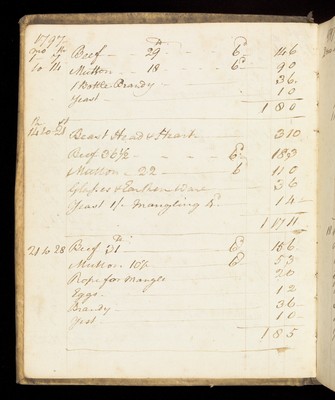 1797
7 to 14 Beef - 29 - 6d 14 6
Mutton - 18 - 6d 9 0
1 Bottle Brandy - 3 6
Yeast - 1 0
1 8 0
14 to 21 Beast Head & Heart - 3 10
Beef 36 1/2 - 6 18 3
Mutton - 22 - 6 11 0
Glasses & Earthen Ware 3 6
Yeast 1/- Mangling
1 17 11
21 to 28 Beef 31 - 6 18 6
Mutton 10 1/2 6 5 3
Rope for Mangle 2 0
Eggs - 1 2
Brandy - 3 6
Yest 1 0
1 8 5